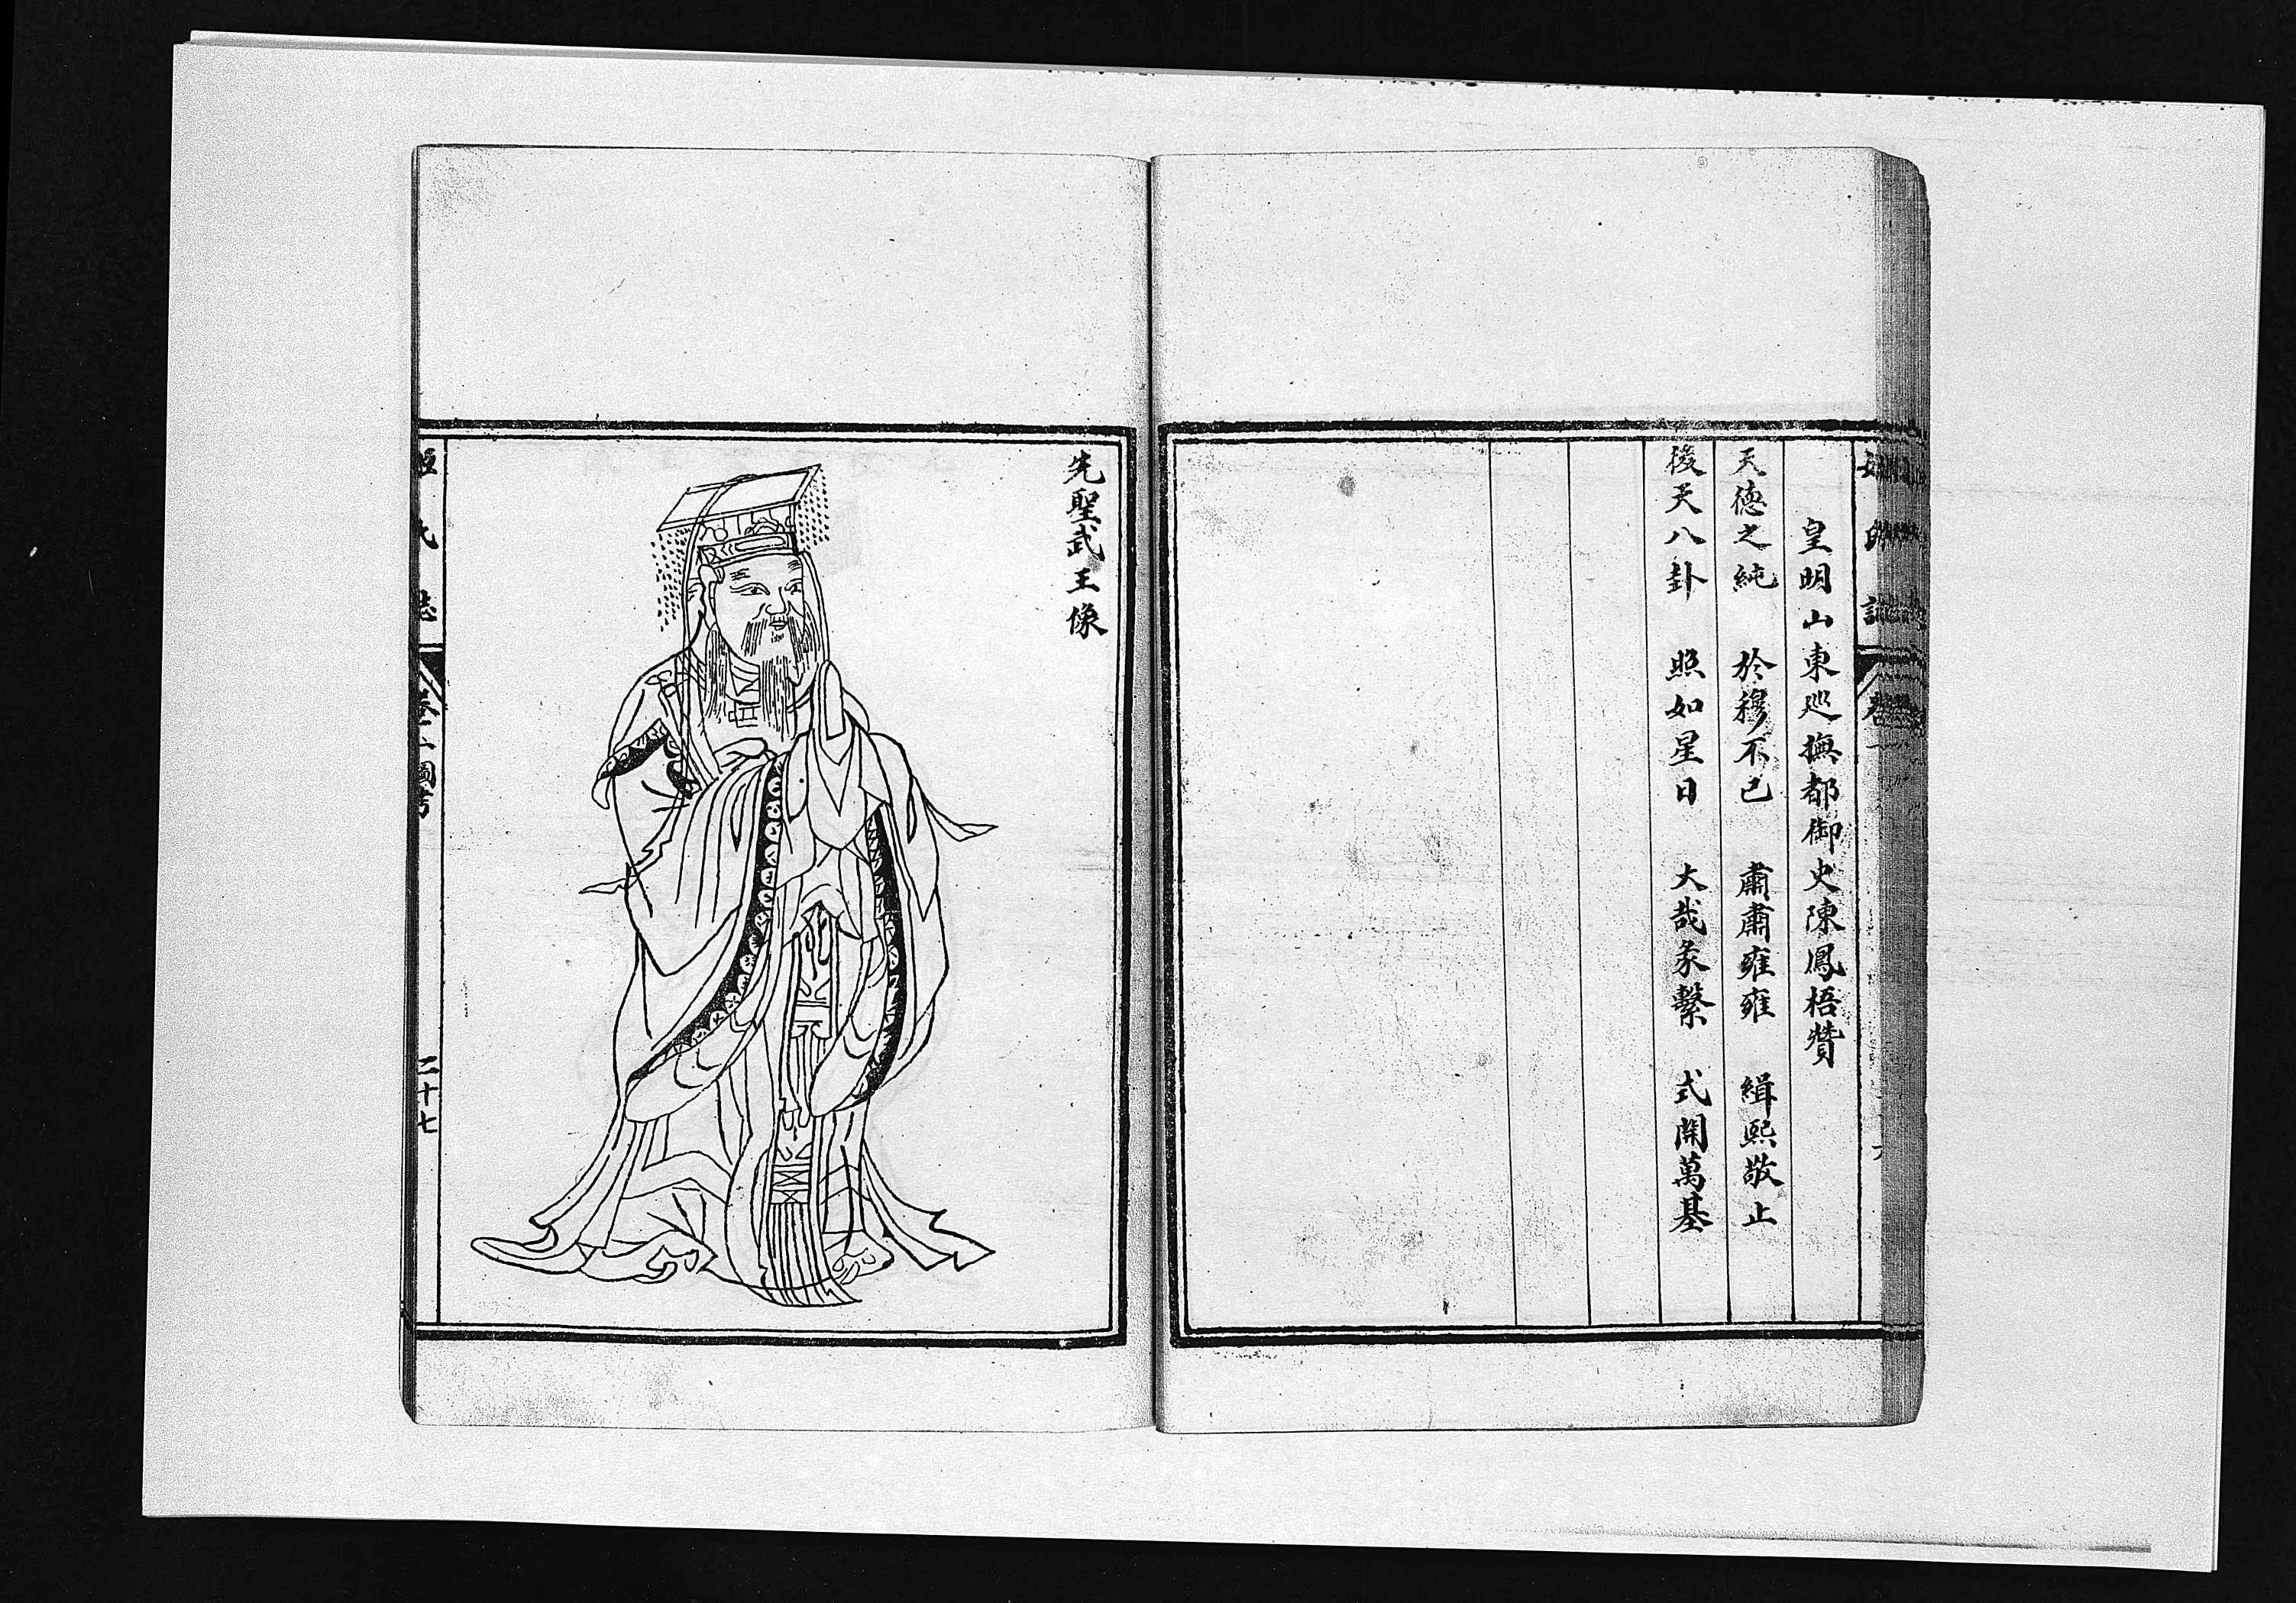 皇明山東巡撫都御史陳鳳梧贊
天德之純　於穆不已　肅肅雍雍　緝熙敬止
後天八卦　照如星日　大哉彖繫　式開萬基
先聖武王像
二十七